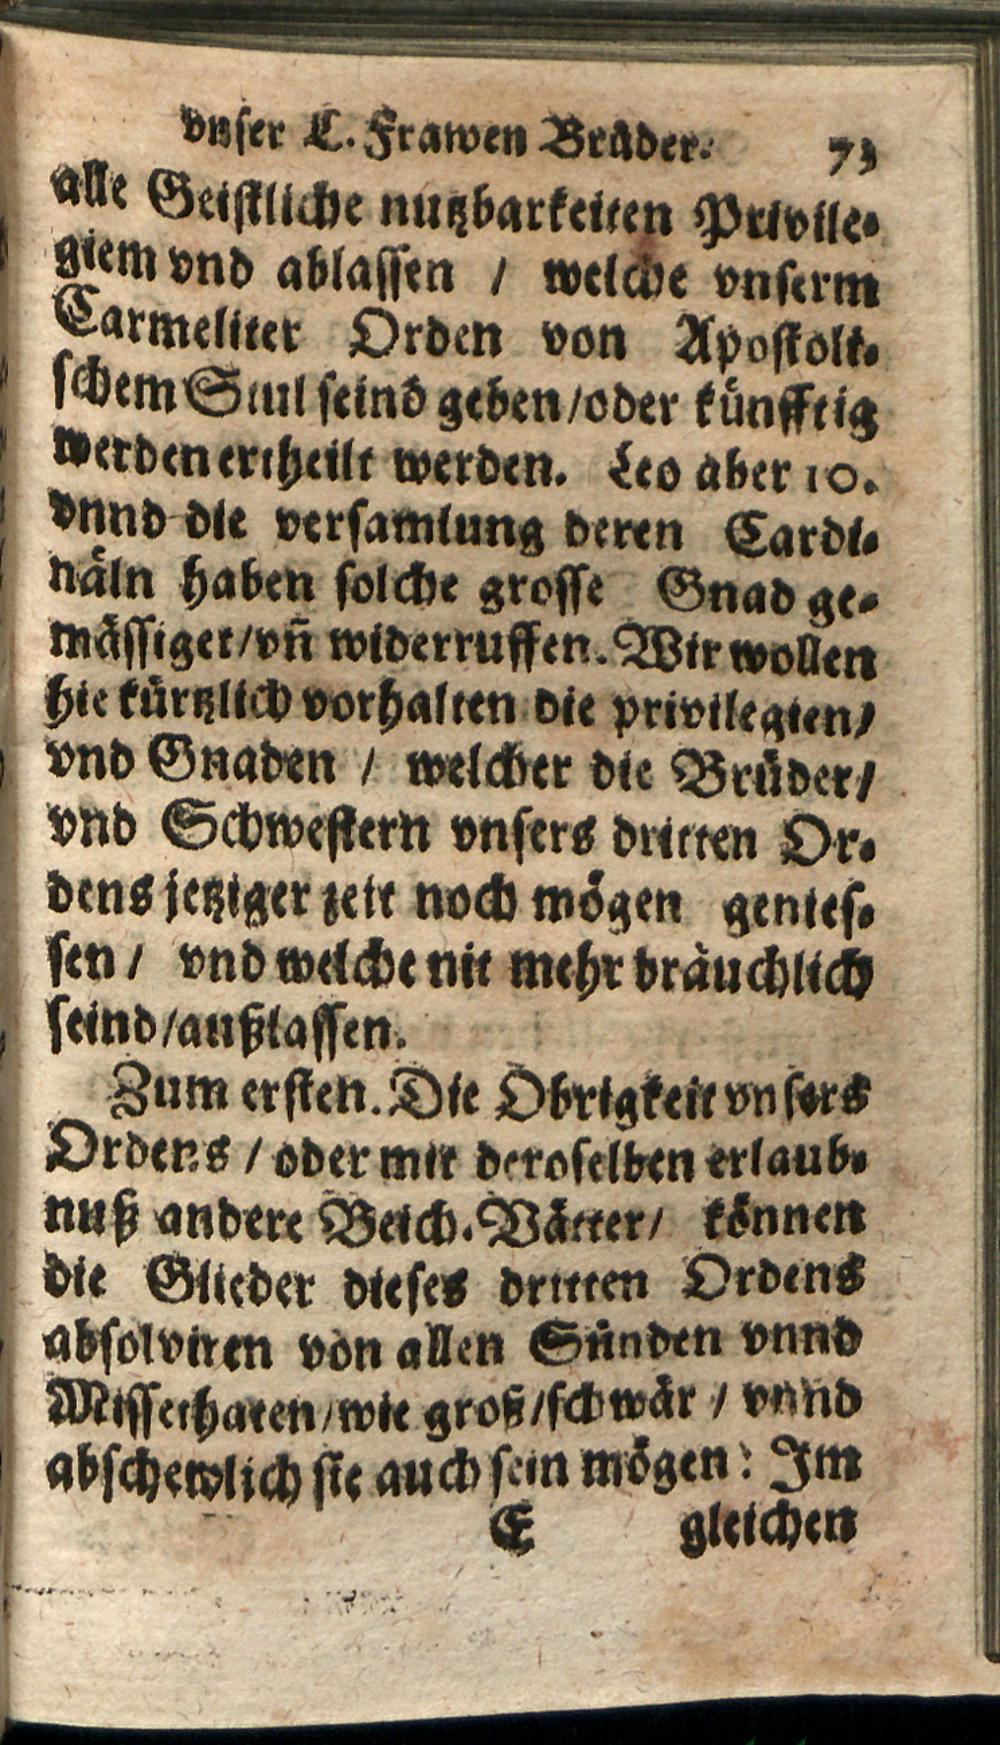 vnser L. Frawen Brüder. 73
alle Geistliche nutzbarkeiten Privile-
giem vnd ablassen / welche vnserm
Carmeliter Orden von Apostoli-
schem Stul seind geben / oder künfftig
werden ertheilt werden. Leo aber 10.
vnnd die versamlung deren Cardi-
näln haben solche grosse Gnad ge-
mässiget / vñ widerruffen. Wir wollen
hie kürtzlich vorhalten die privilegien /
vnd Gnaden / welcher die Brüder /
vnd Schwestern vnsers dritten Or-
dens jetziger zeit noch mögen genies-
sen / vnd welche nit mehr bräuchlich
seind / außlassen.
Zum ersten. Die Obrigkeit vnsers
Ordens / oder mit deroselben erlaub-
nuß andere Beich-Vätter / können
die Glieder dieses dritten Ordens
absolviren von allen Sünden vnnd
Missethaten / wie groß / schwär / vnnd
abschewlich sie auch sein mögen: Im
E gleichen